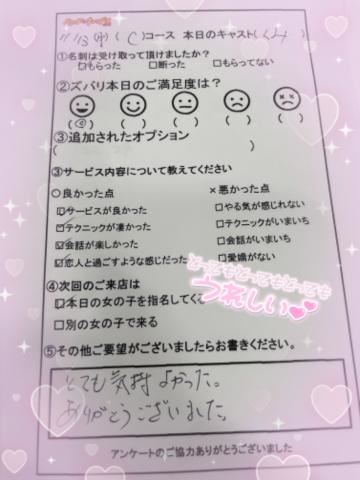 11/13(水)( C )コース 本日のキャスト( くみ )
①名刺は受け取って頂けましたか？
□もらった □断った □もらってない
②ズバリ本日のご満足度は？
③追加されたオプション
( )
③サービス内容について教えてください
○良かった点 ×悪かった点
☑サービスが良かった □やる気が感じれない
☑テクニックが凄かった □テクニックがいまいち
☑会話が楽しかった □会話がいまいち
☑恋人と過ごすような感じだった □愛嬌がない
とってもとってもとっても
うれしい
④次回のご来店は
☑本日の女の子を指名してく
□別の女の子で来る
⑤その他ご要望がございましたらお書きください。
とても気持よかった。
ありがとうございました。
アンケートのご協力ありがとうございました